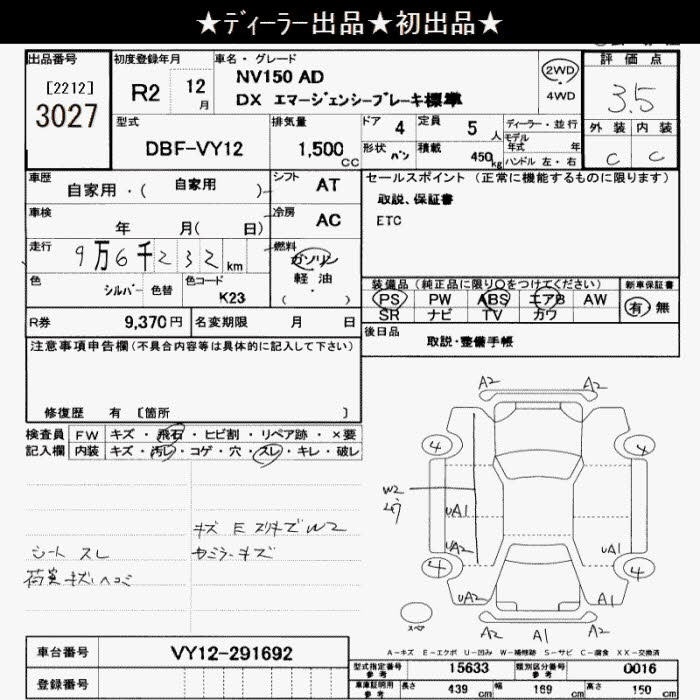 ★ディーラー出品★初出品★
出品番号 初度登録年月 車名・グレード 評価点
[2212] 3027 R2 12月 NV150 AD 2WD 3.5
DX エマージェンシーブレーキ標準 4WD
型式 排気量 ドア 4 定員 5人 ディーラー・並行 外装 内装
DBF-VY12 1,500cc 形状 バン 積載 450kg モデル年式 年 C C
ハンドル 左・右
車歴 自家用・( 自家用 ) シフト AT セールスポイント (正常に機能するものに限ります)
取説、保証書
車検 年 月( 日) 冷房 AC ETC
走行 9万6千232km 燃料 ガソリン
軽油
( )
色 シルバー 色替 色コード K23
装備品 (純正品に限り○をつけてください) 新車保証書
PS PW ABS エアB AW 有 無
SR ナビ TV カワ
R券 9,370円 名変期限 月 日 後日品 取説・整備手帳
注意事項申告欄(不具合内容等は具体的に記入して下さい)
修復歴 有 [箇所 ]
検査員 FW キズ・飛石・ヒビ割・リペア跡・×要
記入欄 内装 キズ・汚レ・コゲ・穴・スレ・キレ・破レ
キズ E スリキズ W2
シート スレ
荷室キズ、ヘコミ
A2 A2
4 4
W2
UA1
UA2 UA1
4 4
UA2 A1
スペア A2 A1 A2
A-キズ E-エクボ U-凹み W-補修跡 S-サビ C-腐食 XX-交換済
車台番号 VY12-291692
型式指定番号 参考 15633 類別区分番号 参考 0016
登録番号
車庫証明用 参考 長さ 439cm 幅 169cm 高さ 150cm